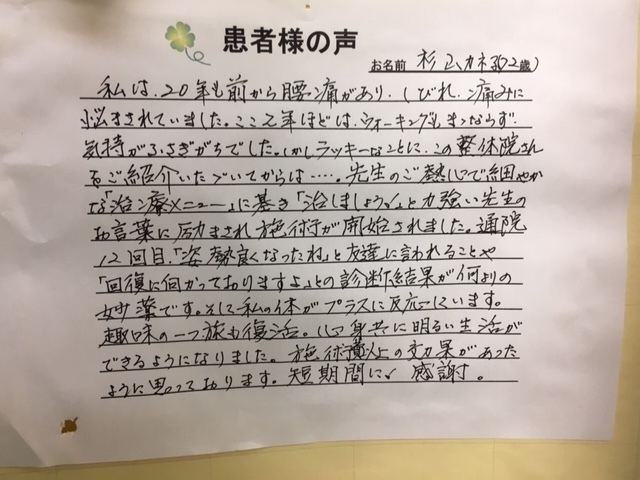 患者様の声
お名前 杉山カネ子(62歳)
私は、20年も前から腰痛があり、しびれ、痛みに
悩まされていました。ここ2年ほどは、ウォーキングもままならず、
気持がふさぎがちでした。しかしラッキーなことに、この整体院さん
をご紹介いただいてからは……。先生のご熱心で細やか
な「治療メニュー」に基き「治しましょう」と力強い先生の
お言葉に励まされ施術が開始されました。通院
12回目、「姿勢良くなったね」と友達に言われることや
「回復に向かっておりますよ」との診断結果が何よりの
妙薬です。そして私の体がプラスに反応しています。
趣味の一つ旅も復活。心身共に明るい生活が
できるようになりました。施術費以上の効果があった
ように思っております。短期間に、感謝。